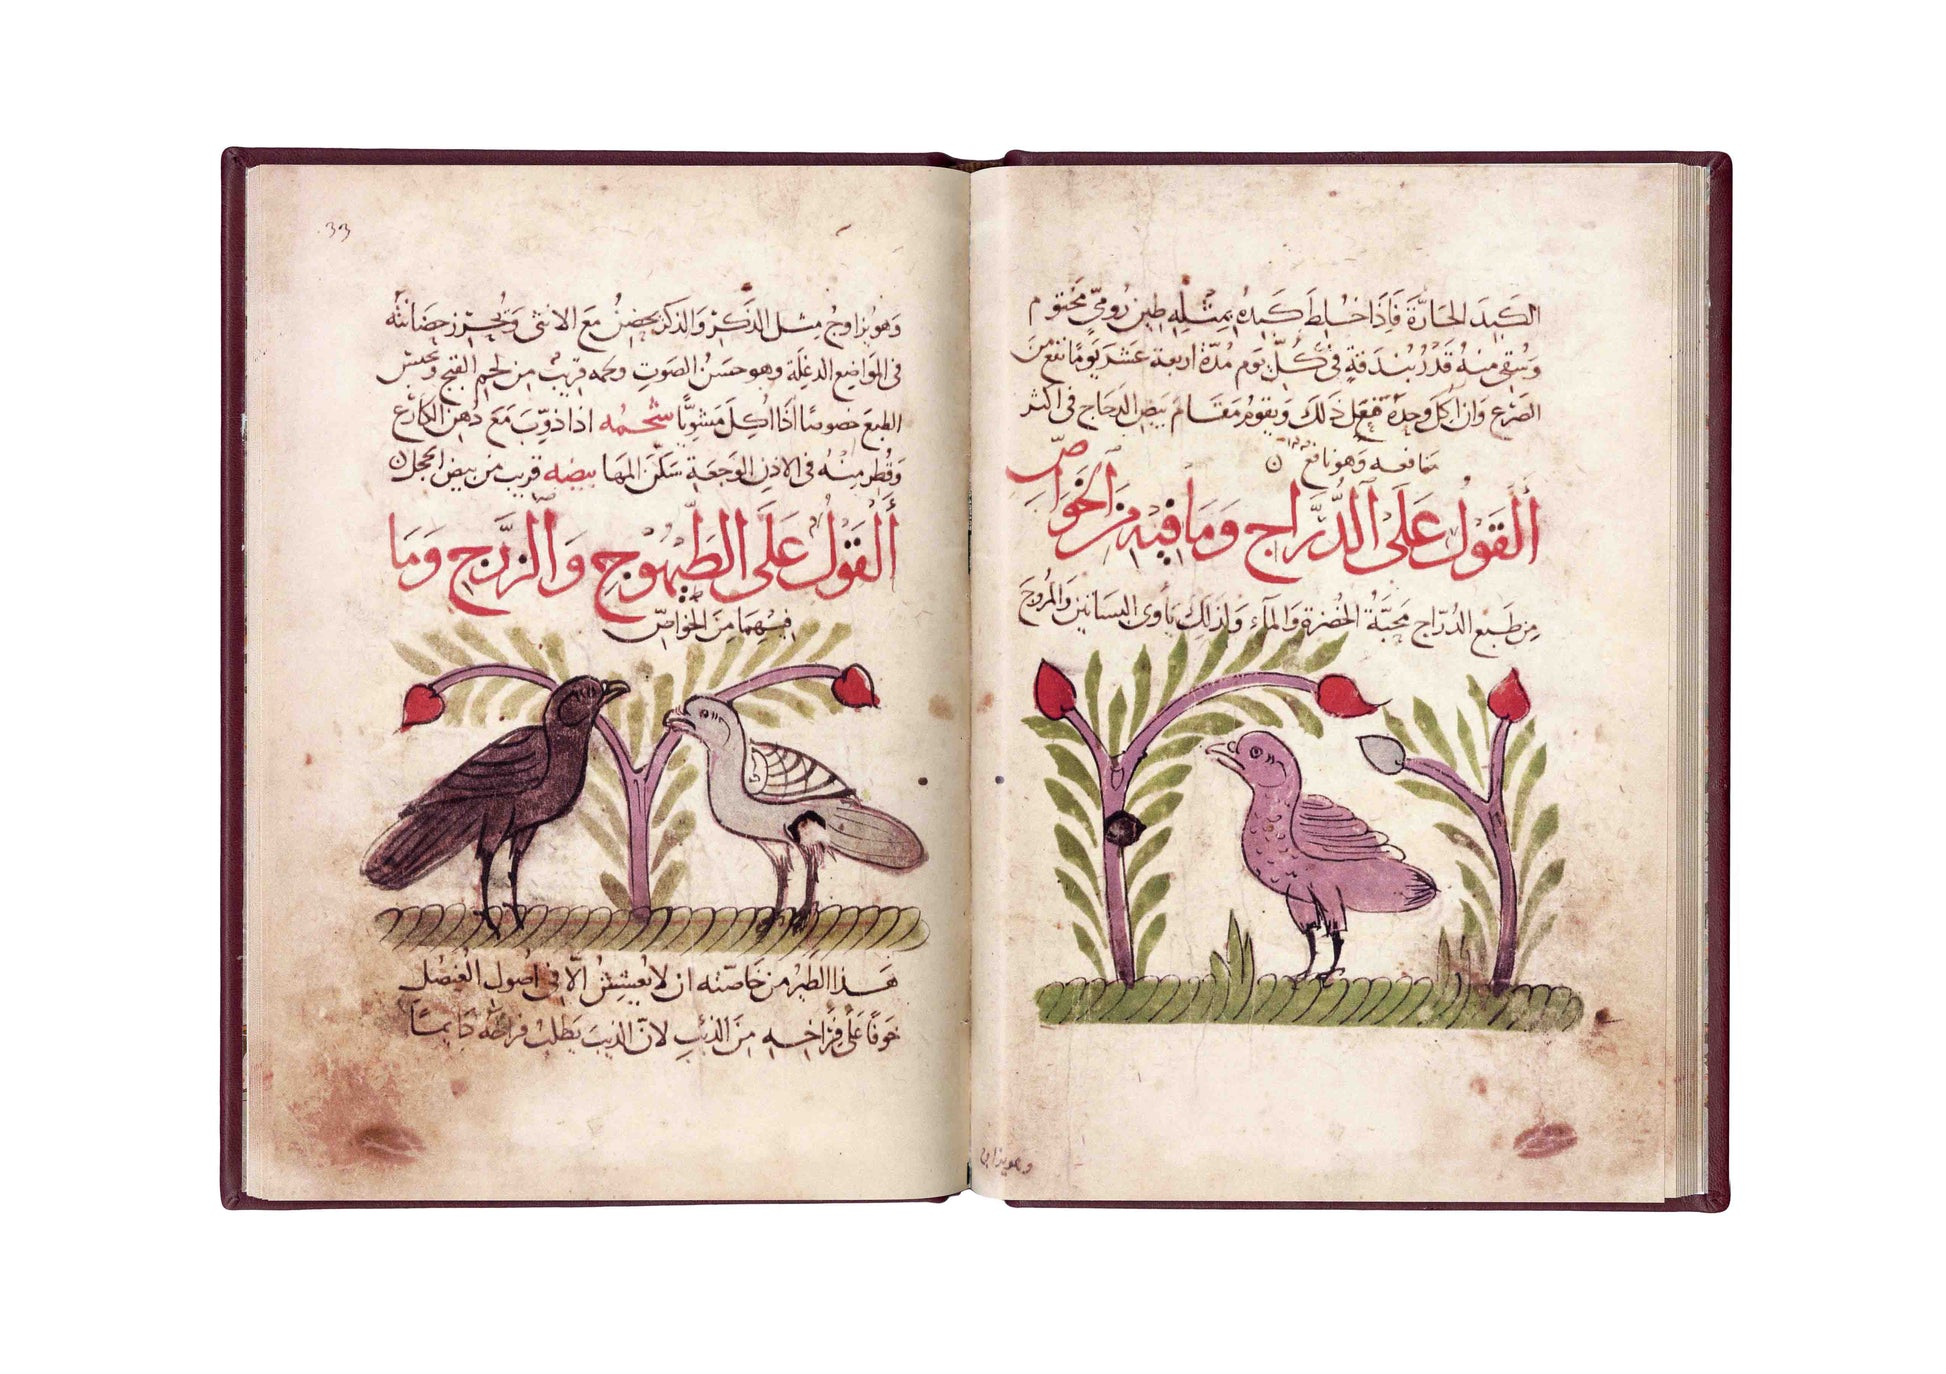 الكَبِدَ الحَارَّةَ فَاِذَا خُلِطَ كَبِدُهُ بِمِثْلِهِ طِينٍ رُومِيٍّ مَخْتُوم
وَسُقِيَ مِنهُ قَدْرُ بُندَقةٍ في كُلِّ يَوم مُدّة اربعة عَشَرَ يَومًا نفعَ منَ
الصَرع وَان اكل وحدَه فعل ذَلكَ وَيقومُ مقَام بَيضِ الدجَاج في اكثر
منافعه وَهو نافع
اَلْقَوْلُ عَلَى الدُّرَّاجِ وَمَا فِيهِ مِنَ الخَوَاصِّ
مِن طَبع الدُرّاج مَحَبَّةُ الخُضرَة وَالمآء وَلذلك يَأوى البسَاتين وَالمُروجَ
وهو يزاوج
33
وَهوَ يُزاوجُ مِثل الذكَر وَالذكَر يحضنُ مَعَ الانثى وَتُحرز حضَانتهُ
في المَوَاضِع الدغِلَة وَهو حَسَنُ الصَوتِ وَلحمه قريبٌ مِن لحم القبج وَيحبسُ
الطبعَ خصُوصًا اذَا اُكِلَ مَشويًّا شحمُه اذا ذوّبَ مَعَ دُهن الكارع
وَقُطر مِنْه في الاذن الوَجعَة سَكّنَ المهَا بيضه قريب من بيض الحجل
اَلْقَوْلُ عَلَى الطَّيْهُوجِ وَالزُّرَّجِ وَمَا
فيهِمَا مِنَ الخَوَاصّ
هَذا الطير من خَاصّته ان لا يُعيشِشُ الّا في اصُول العُنصُل
خَوفًا عَلَى فِرَاخِه مِنَ الذئب لانّ الذيبَ يَطلبُ فراخَه دَايمًا